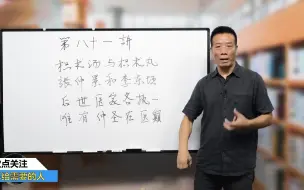 第八十一讲
枳术汤与枳术丸
张仲景和李东垣
后世医家各执一
唯有仲圣在医巅
点关注
给需要的人